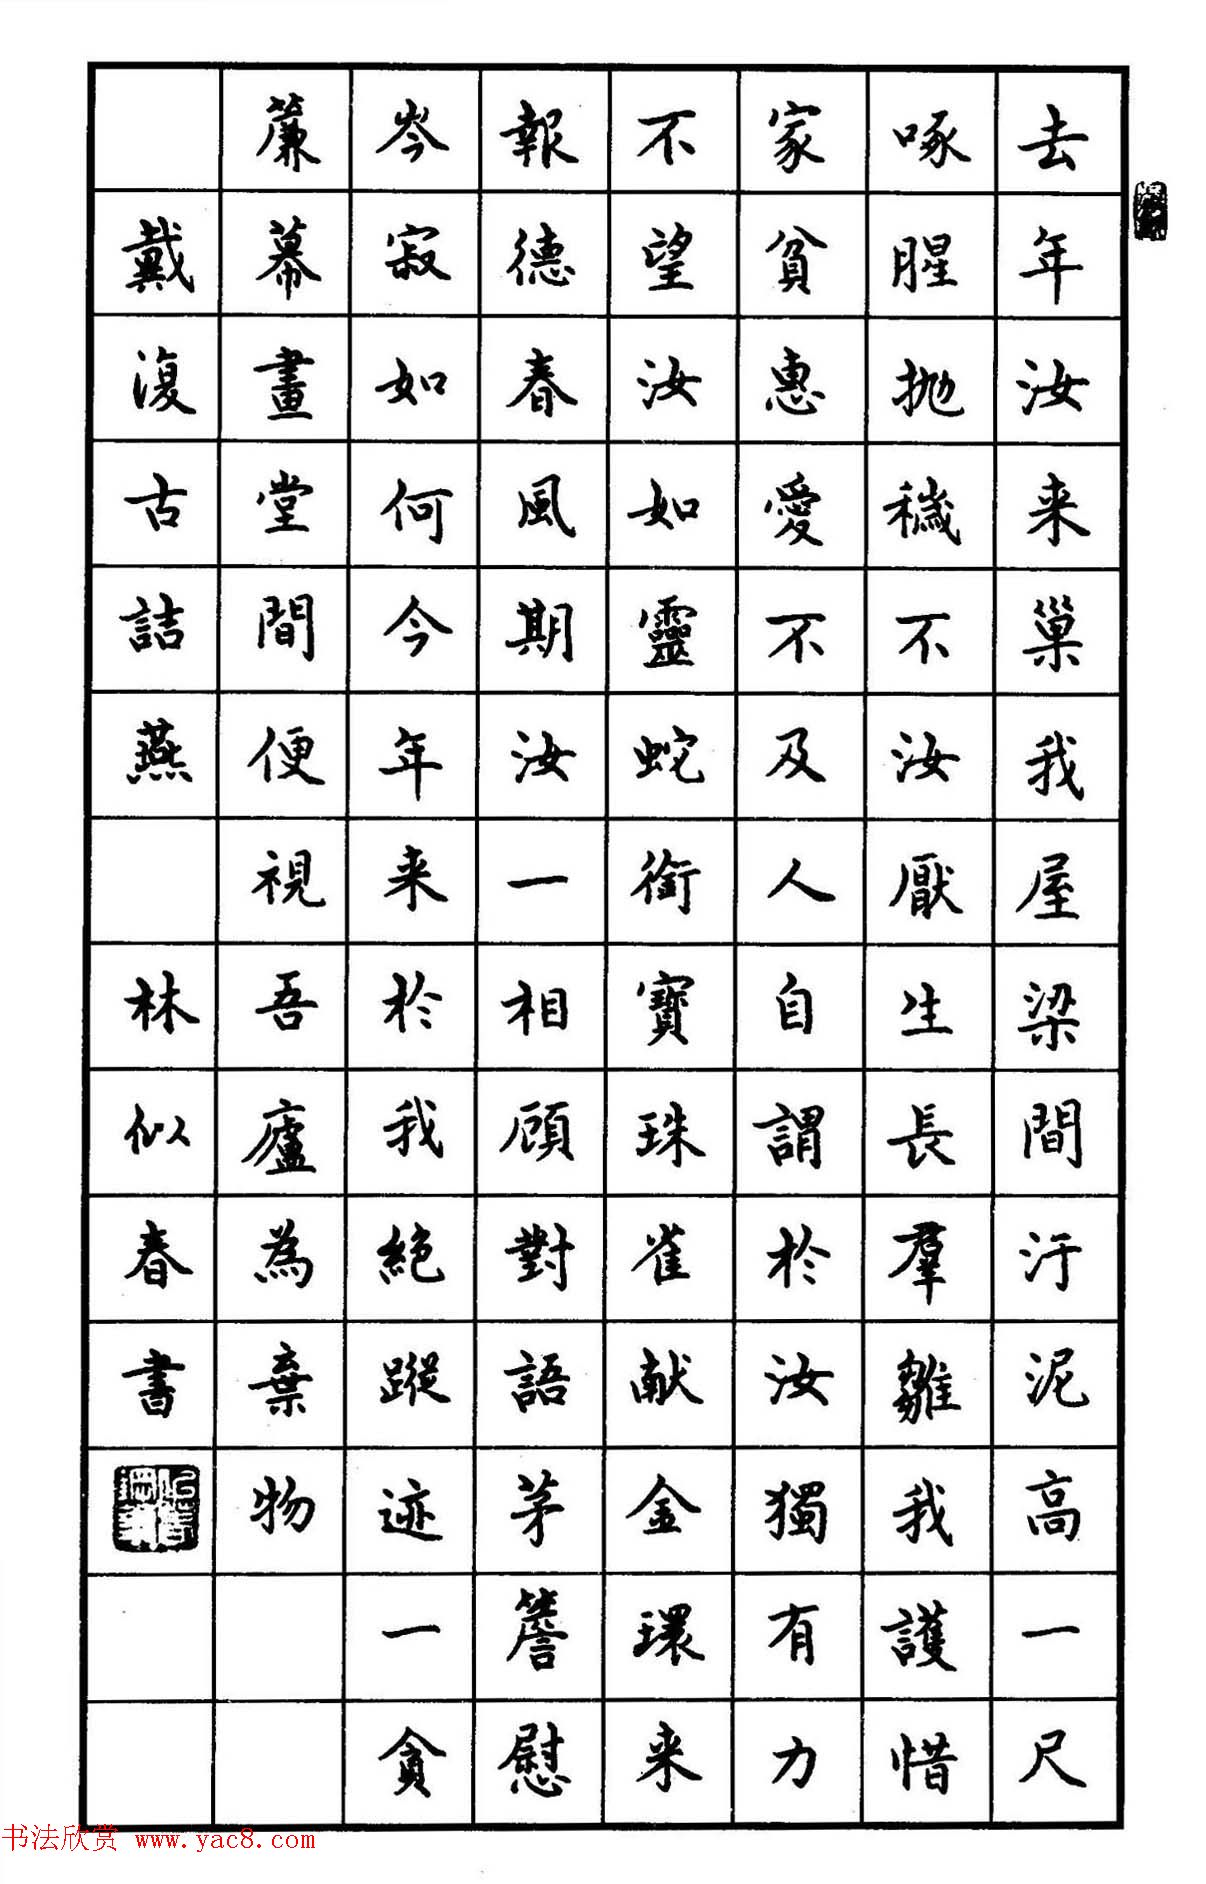 去年汝来巢我屋梁間汙泥高一尺
啄腥抛穢不汝厭生長羣雛我護惜
家貧惠愛不及人自謂於汝獨有力
不望汝如靈蛇銜寶珠雀献金環来
報德春風期汝一相顧對語茅簷慰
岑寂如何今年来於我絶蹤迹一貪
簾幕畫堂間便視吾廬為棄物
戴復古詰燕 林似春書
书法欣赏 www.yac8.com